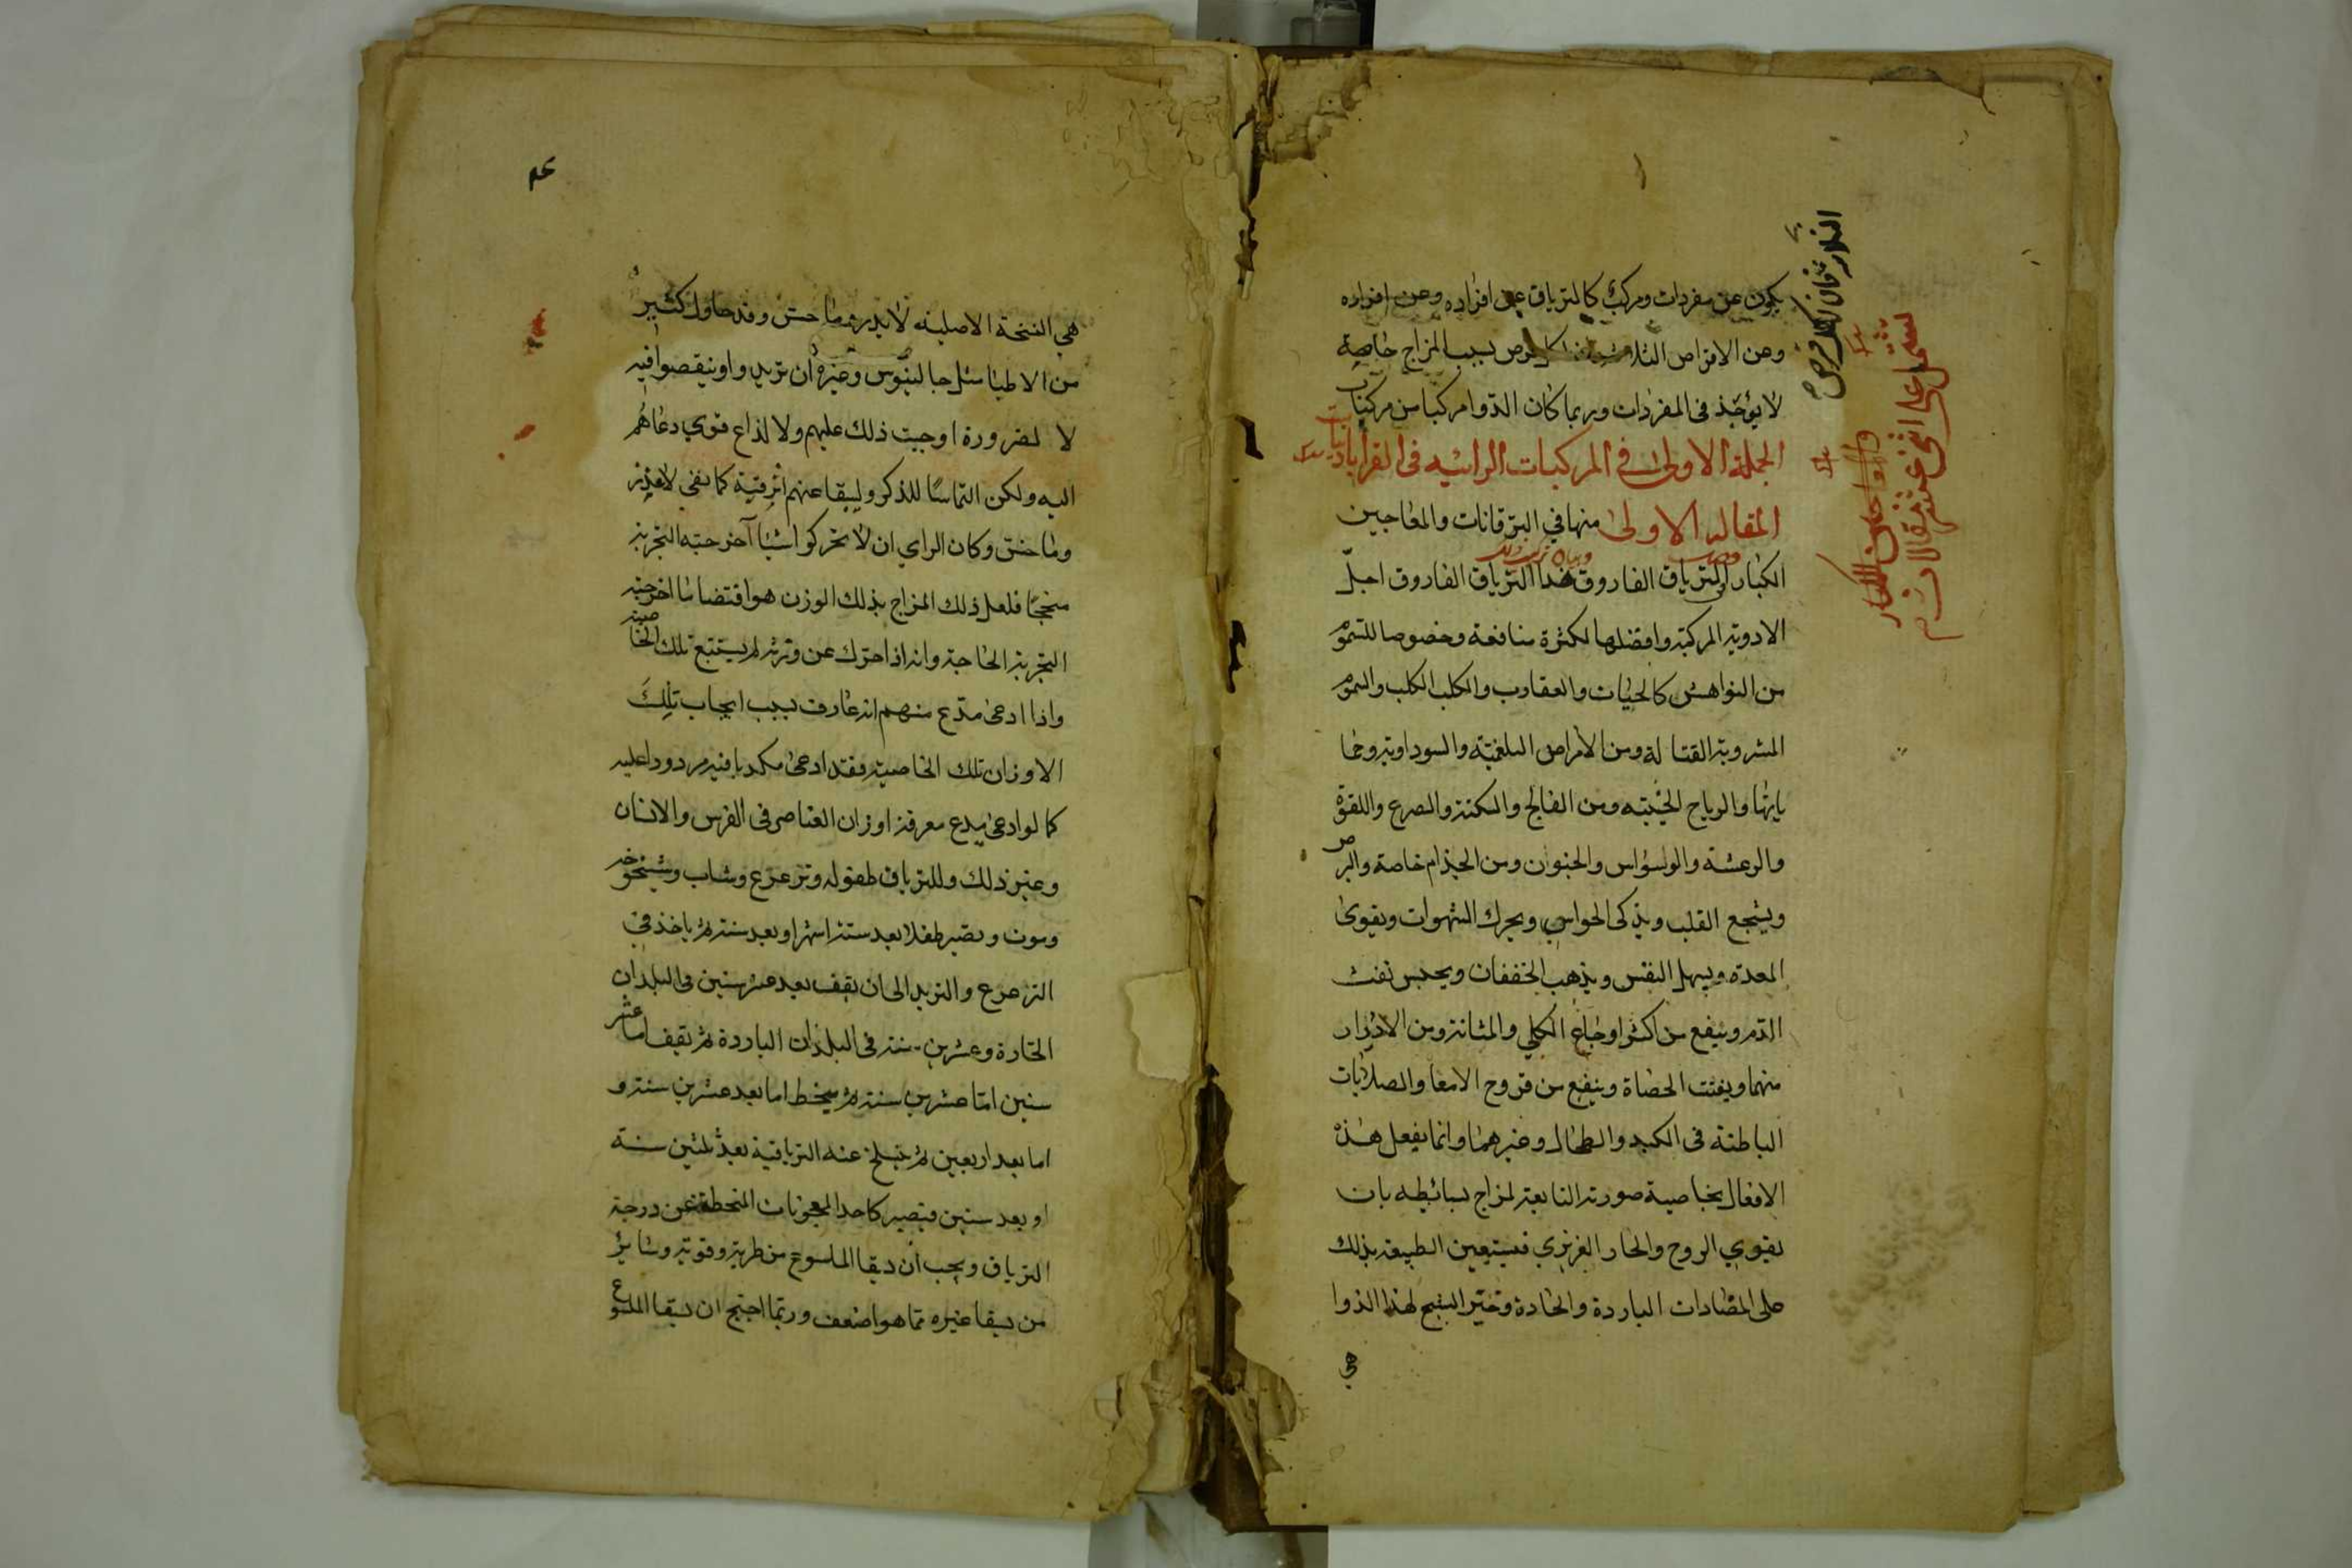 يكون عن مفردات ومركب كالترياق عن افراده وعن افراده
وعن الاقراص الثلاثة بسبب المزاج خاصية
لا يؤخذ في المفردات وربما كان الدوا مركبا من مركبات
الجملة الاولى في المركبات الراتبه في القراباذينات
المقاله الاولى منها في الترقانات والمعاجين
الكبار الترياق الفاروق هذا الترياق الفاروق اجلّ
الادويه المركبة وافضلها لكثرة منافعة وخصوصا للسموم
من النواهش كالحيات والعقارب والكلب الكلب والسموم
المشروبة القتالة ومن الامراض البلغمية والسوداوية وحما
ياتها والرياح الخبيثه ومن الفالج والسكتة والصرع واللقوة
والرعشه والوسواس والجنون ومن الجذام خاصة والبرص
ويشجع القلب ويذكي الحواس ويحرك الشهوات ويقوى
المعده ويسهل النفس ويذهب الخفقان ويحبس نفث
الدم وينفع من اكثر اوجاع الكلي والمثانة ومن الادرار
منهما ويفتت الحصاة وينفع من قروح الامعا والصلابات
الباطنة في الكبد والطحال وغيرهما وانما يفعل هذه
الافعال بخاصية صورته التابعة لمزاج بسائطه بان
يقوي الروح والحار الغريزي فيستعين الطبيعه بذلك
على المضادات الباردة والحادة وخير النسخ لهذا الدوا
هي
يشتمل على اثني عشر مقالات
هي النسخة الاصلية لاندرماخس وقد حاول كثير
من الاطبا مثل جالينوس وغيره ان يزيدوا او ينقصوا فيه
لا لضرورة اوجبت ذلك عليهم ولا لداع قوي دعاهم
اليه ولكن التماسا للذكر وليبقا عنهم اثر فيه كما بقي لاندر
وماخس وكان الراي ان لا يحركوا شيا آخرجته التجربة
منجحا فلعل ذلك المزاج بذلك الوزن هو اقتضا ما اخرجته
التجربة الخاصية وانه اذا احرك عن وتره لم يستتبع تلك الخاصية
واذا ادعى مدع منهم انه عارف بسبب ايجاب تلك
الاوزان تلك الخاصية فقد ادعى مكذبا فيه مردودا عليه
كما لو ادعى مدع معرفة اوزان العناصر في الفرس والانسان
وغير ذلك وللترياق طفوله وترعرع وشاب وشيخوخه
وموت ويصير طفلا بعد ستة اشهر او بعد سنة ثم ياخذ في
الترعرع والتزيد الى ان يقف بعد عشر سنين في البلدان
الحارة وعشرين سنة في البلدان الباردة ثم يقف اما عشر
سنين اما عشرين سنة ثم ينحط اما بعد عشرين سنة و
اما بعد اربعين ثم ينسلخ عنه الترياقية بعد ثلثين سنة
او بعد ستين فيصير كاحد المعجونات المنحطة عن درجة
الترياق ويجب ان يسقا الملسوع من طريه وقويه وسائر
من يسقا غيره مما هو اضعف وربما احتيج ان يسقا الملسوع